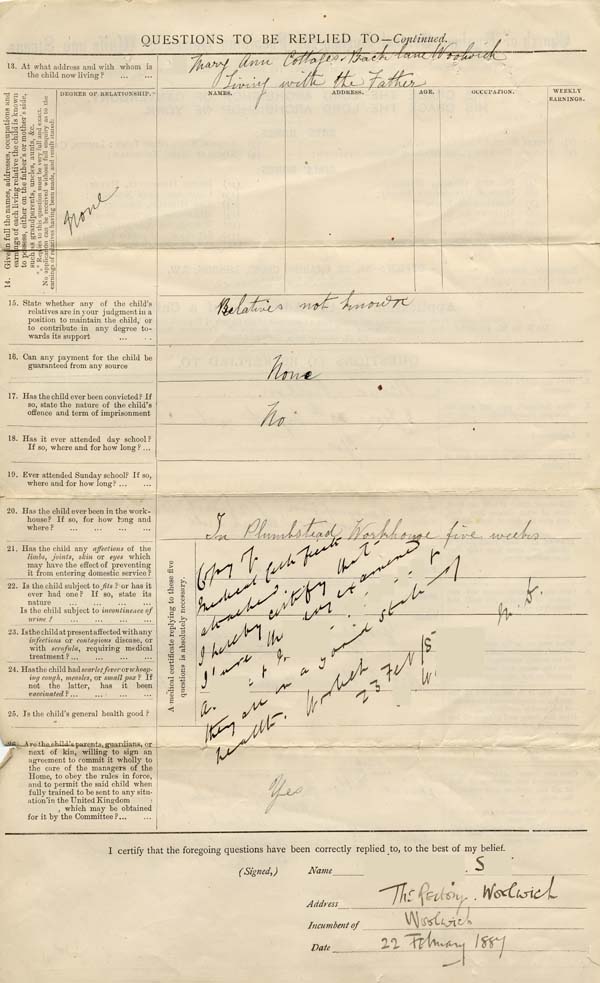 QUESTIONS TO BE REPLIED TO—Continued.
13. At what address and with whom is
the child now living? ... ...
Mary Ann Cottages. Back lane Woolwich
Living with the Father
14. Give in full the names, addresses, occupations and
earnings of each living relative the child is known
to possess, either on the father's or mother's side,
such as grandparents, uncles, aunts, &c.
*** Replies to this question must be very full and exact.
No application can be received without full enquiry as to the
earnings of relatives having been made, and result stated:
DEGREE OF RELATIONSHIP.
NAMES.
ADDRESS.
AGE.
OCCUPATION.
WEEKLY
EARNINGS.
None
15. State whether any of the child's
relatives are in your judgment in a
position to maintain the child, or
to contribute in any degree to-
wards its support ... ...
Relatives not known
16. Can any payment for the child be
guaranteed from any source
None
17. Has the child ever been convicted? If
so, state the nature of the child's
offence and term of imprisonment
No
18. Has it ever attended day school?
If so, where and for how long? ...
19. Ever attended Sunday school? If so,
where and for how long? ... ...
20. Has the child ever been in the work-
house? If so, for how long and
where? ... ... ... ...
In Plumbstead Workhouse five weeks
21. Has the child any affections of the
limbs, joints, skin or eyes which
may have the effect of preventing
it from entering domestic service?
22. Is the child subject to fits? or has it
ever had one? If so, state its
nature ... ... ... ...
Is the child subject to incontinence of
urine? ... ... ... ...
23. Is the child at present affected with any
infectious or contagious disease, or
with scrofula, requiring medical
treatment? ... ... ... ...
24. Has the child had scarlet fever or whoop-
ing cough, measles, or small pox? If
not the latter, has it been
vaccinated? ... ... ... ...
25. Is the child's general health good?
A medical certificate replying to these five
questions is absolutely necessary.
Copy of
Medical Certificate
attached.
I hereby certify that
I have this day examined
they are in a good state of
health. Woolwich
23 Feb
M.D.
26. Are the child's parents, guardians, or
next of kin, willing to sign an
agreement to commit it wholly to
the care of the managers of the
Home, to obey the rules in force,
and to permit the said child when
fully trained to be sent to any situ-
ation in the United Kingdom
, which may be obtained
for it by the Committee? ... ...
Yes
I certify that the foregoing questions have been correctly replied to, to the best of my belief.
(Signed,) Name S
Address The Rectory. Woolwich
Incumbent of Woolwich
Date 22 February 1887